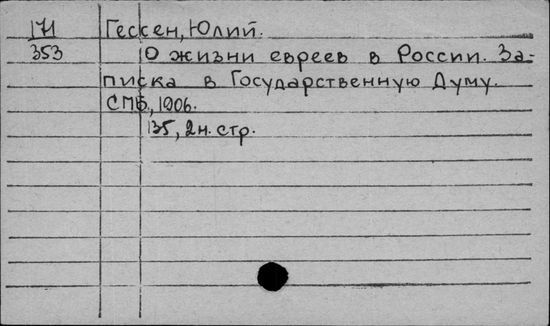 171 Гессен, Юлий.
353 О жизни евреев в России. За-
писка в Государственную Думу.
СПБ, 1906.
135, 2 н. стр.